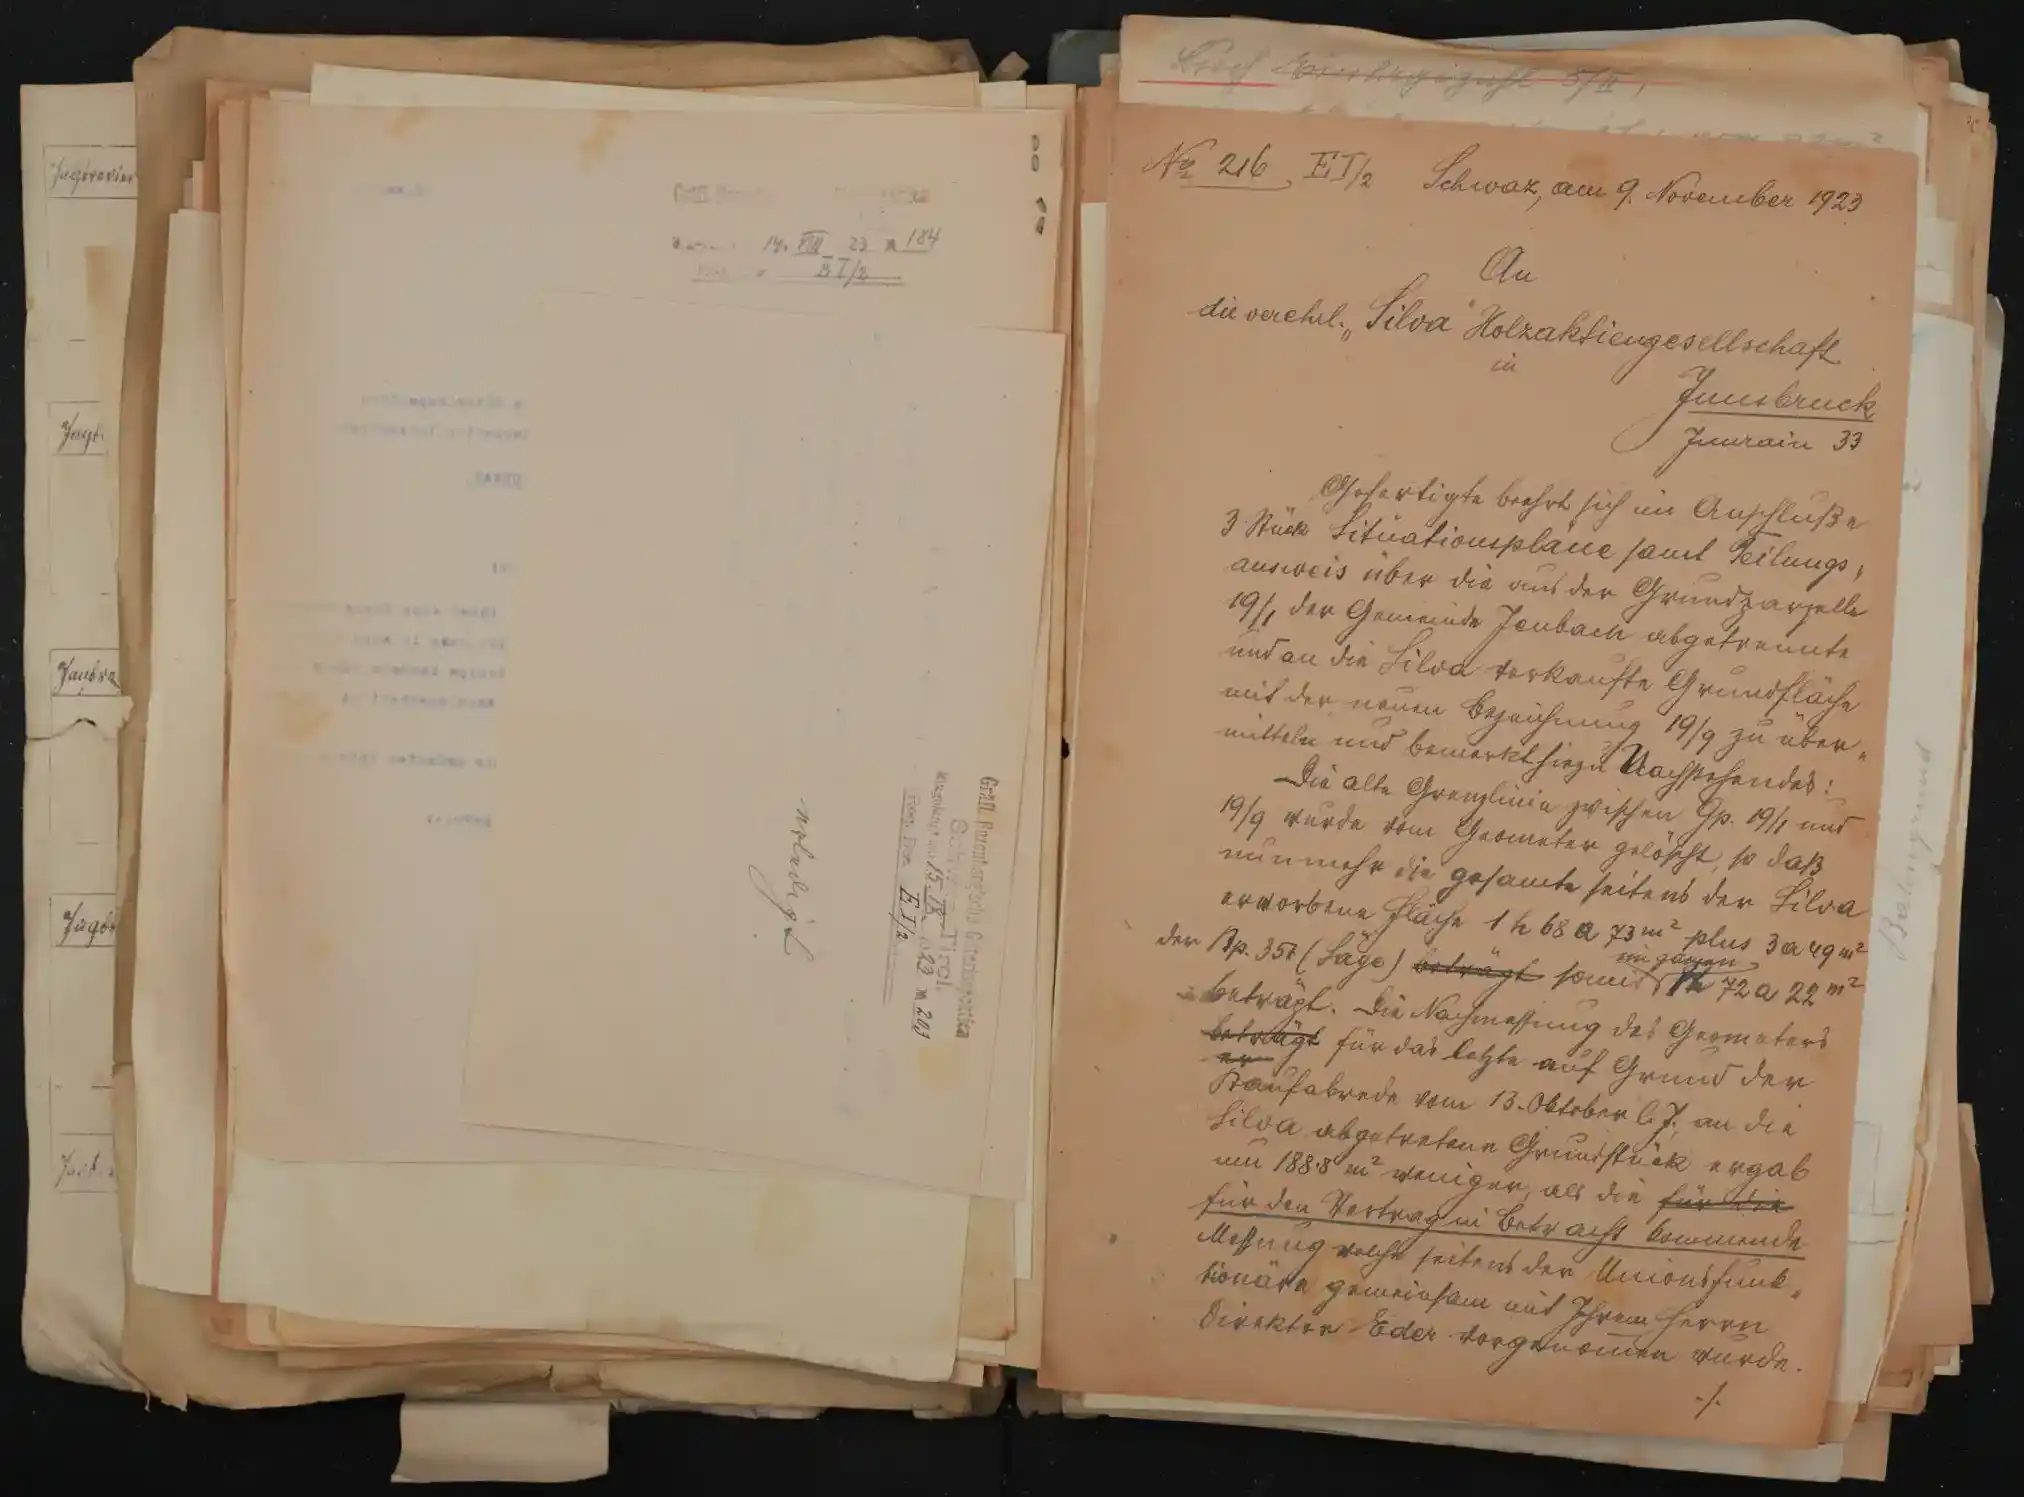 Jagdrevier
Jagd
14. VIII 23 № 184
E I/2
Gräfl. Enzenberg'sche Güterinspektion
Schwaz, Tirol.
15. IX. 1923 № 203
E I/2
erledigt
5/II,
№ 216 E I/2 Schwaz, am 9. November 1923
An
die verehrl. „Silva" Holzaktiengesellschaft
in
Innsbruck
Innrain 33
Gefertigte beehrt sich im Anschluße
3 Stück Situationspläne samt Teilungs-
ausweis über die aus der Grundparzelle
19/1 der Gemeinde Jenbach abgetrennte
und an die Silva verkaufte Grundfläche
mit der neuen Bezeichnung 19/9 zu über-
mitteln und bemerkt hiezu Nachstehendes:
Die alte Grenzlinie zwischen Gp. 19/1 und
19/9 wurde vom Geometer gelöscht, so daß
nunmehr die gesamte seitens der Silva
erworbene Fläche 1 h 68 a 73 m² plus 3 a 49 m²
der Bp. 351 (Säge) beträgt somit im ganzen 1 h 72 a 22 m²
beträgt. Die Nachmessung des Geometers
beträgt für das letzte auf Grund der
er
Kaufabrede vom 13. Oktober l. J. an die
Silva abgetretene Grundstück ergab
um 188.8 m² weniger, als die für die
für den Vertrag in Betracht kommende
Messung welche seitens der Unionsfunk-
tionäre gemeinsam mit Ihrem Herrn
Direktor Eder vorgenommen wurde.
-/.
Bahngrund